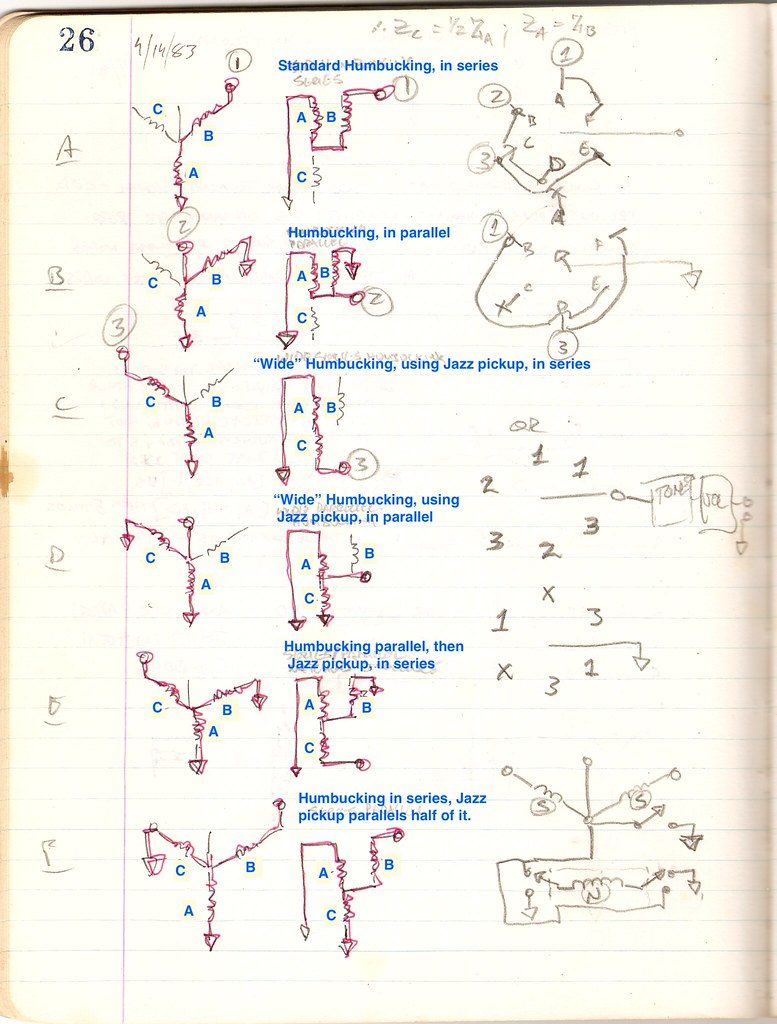 26
4/14/83
∴ Zc = ½ ZA ; ZA = ZB
1
Standard Humbucking, in series
SERIES
1
C
B
A
A
B
C
A
1
2
3
A
B
C
D
E
F
2
Humbucking, in parallel
PARALLEL
B
C
B
A
A
B
C
2
1
B
A
F
C
E
D
3
3
"Wide" Humbucking, using Jazz pickup, in series
C
C
B
A
A
B
C
3
OR
1
2
1
3
3
2
X
1
3
X
3
1
TONE
VOL
"Wide" Humbucking, using
Jazz pickup, in parallel
D
C
B
A
A
B
C
Humbucking parallel, then
Jazz pickup, in series
E
C
B
A
A
B
C
Humbucking in series, Jazz
pickup parallels half of it.
F
C
B
A
A
B
C
S
S
N